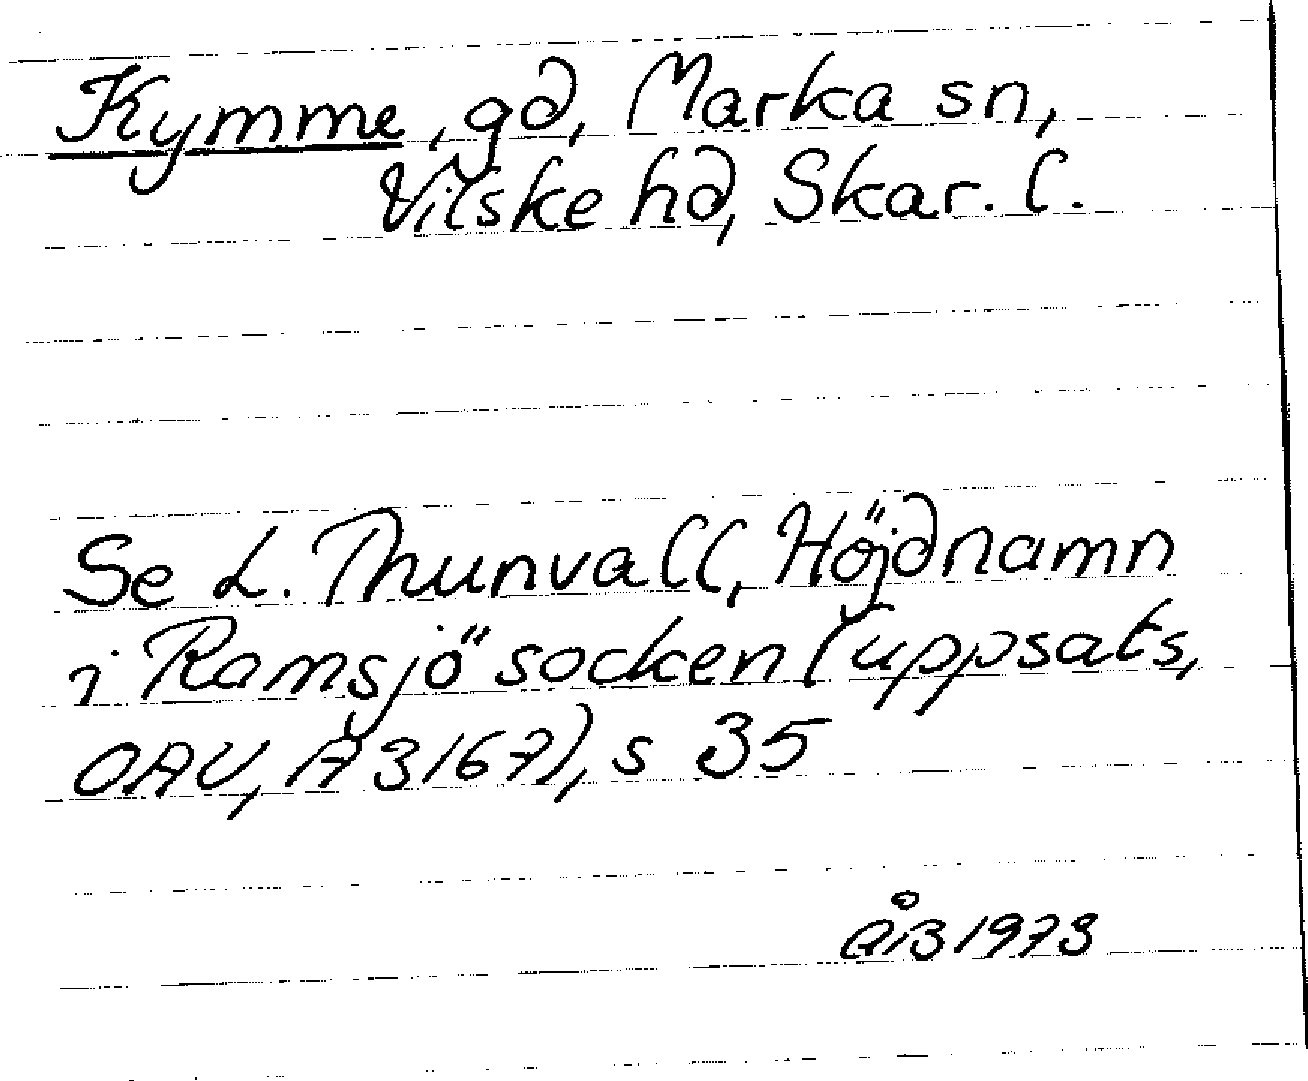 Kymme, gd, Marka sn,
Vilske hd, Skar. l.
Se L. Thunvall, Höjdnamn
i Ramsjö socken (uppsats,
OAU, A 3167), s 35
ÅB 1973